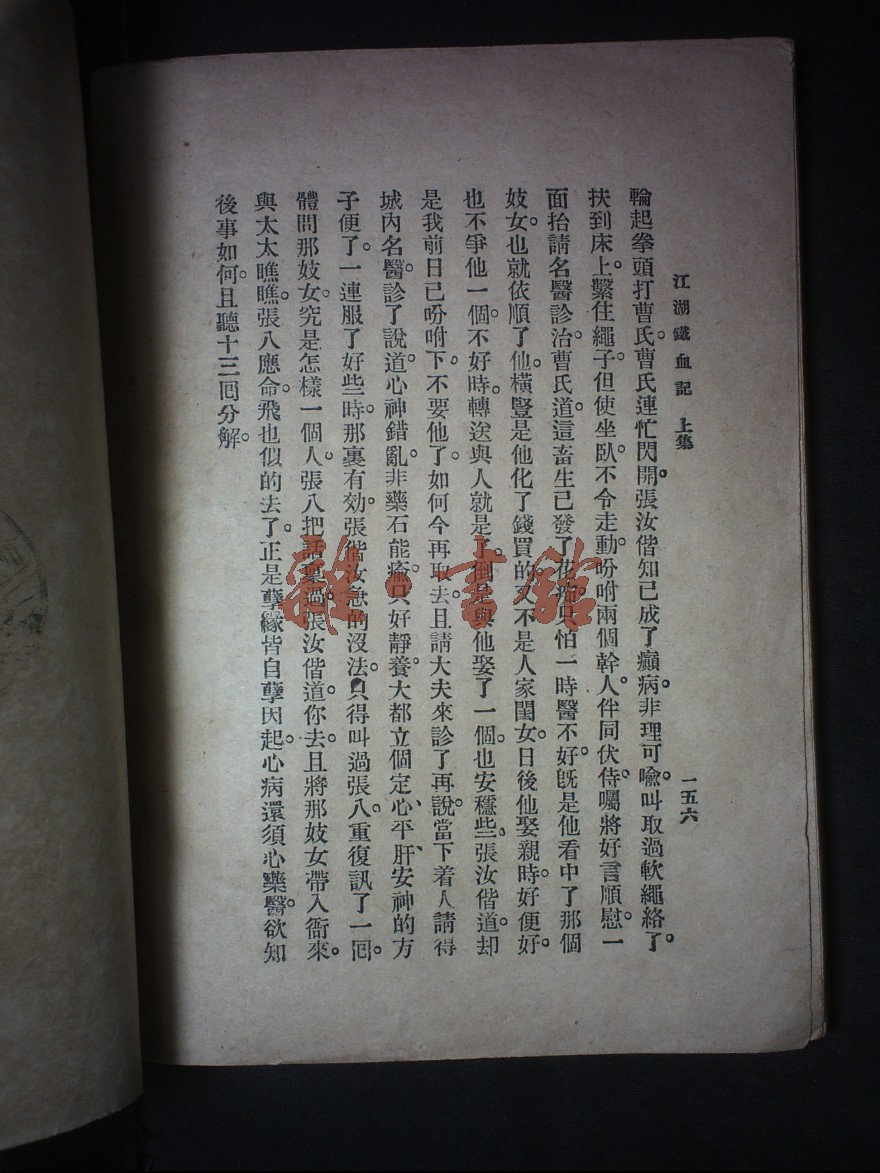 江湖鐵血記 上集 一五六
輪起拳頭打曹氏曹氏連忙閃開。張汝偕知已成了癲病。非理可喻。叫取過軟繩絡了。
扶到床上。繫住繩子。但使坐臥。不令走動。吩咐兩個幹人。伴同伏侍。囑將好言順慰。一
面抬請名醫診治。曹氏道。這畜生已發了花痴。只怕一時醫不好。旣是他看中了那個
妓女。也就依順了他。橫豎是他化了錢買的。又不是人家閨女。日後他娶親時。好便好。
也不爭他一個。不好時。轉送與人就是了。倒是與他娶了一個。也安穩些。張汝偕道。却
是我前日已吩咐下。不要他了。如何今再取去。且請大夫來診了再說。當下着人請得
城內名醫診了。說道。心神錯亂。非藥石能瘉。只好靜養。大都立個定心、平肝、安神的方
子便了。一連服了好些時。那裏有効。張偕汝急的沒法。只得叫過張八。重復訊了一囘。
體問那妓女。究是怎樣一個人。張八把話稟過。張汝偕道。你去。且將那妓女帶入衙來。
與太太瞧瞧。張八應命。飛也似的去了。正是孽緣皆自孽因起。心病還須心藥醫。欲知
後事如何。且聽十三囘分解。
雜·書館